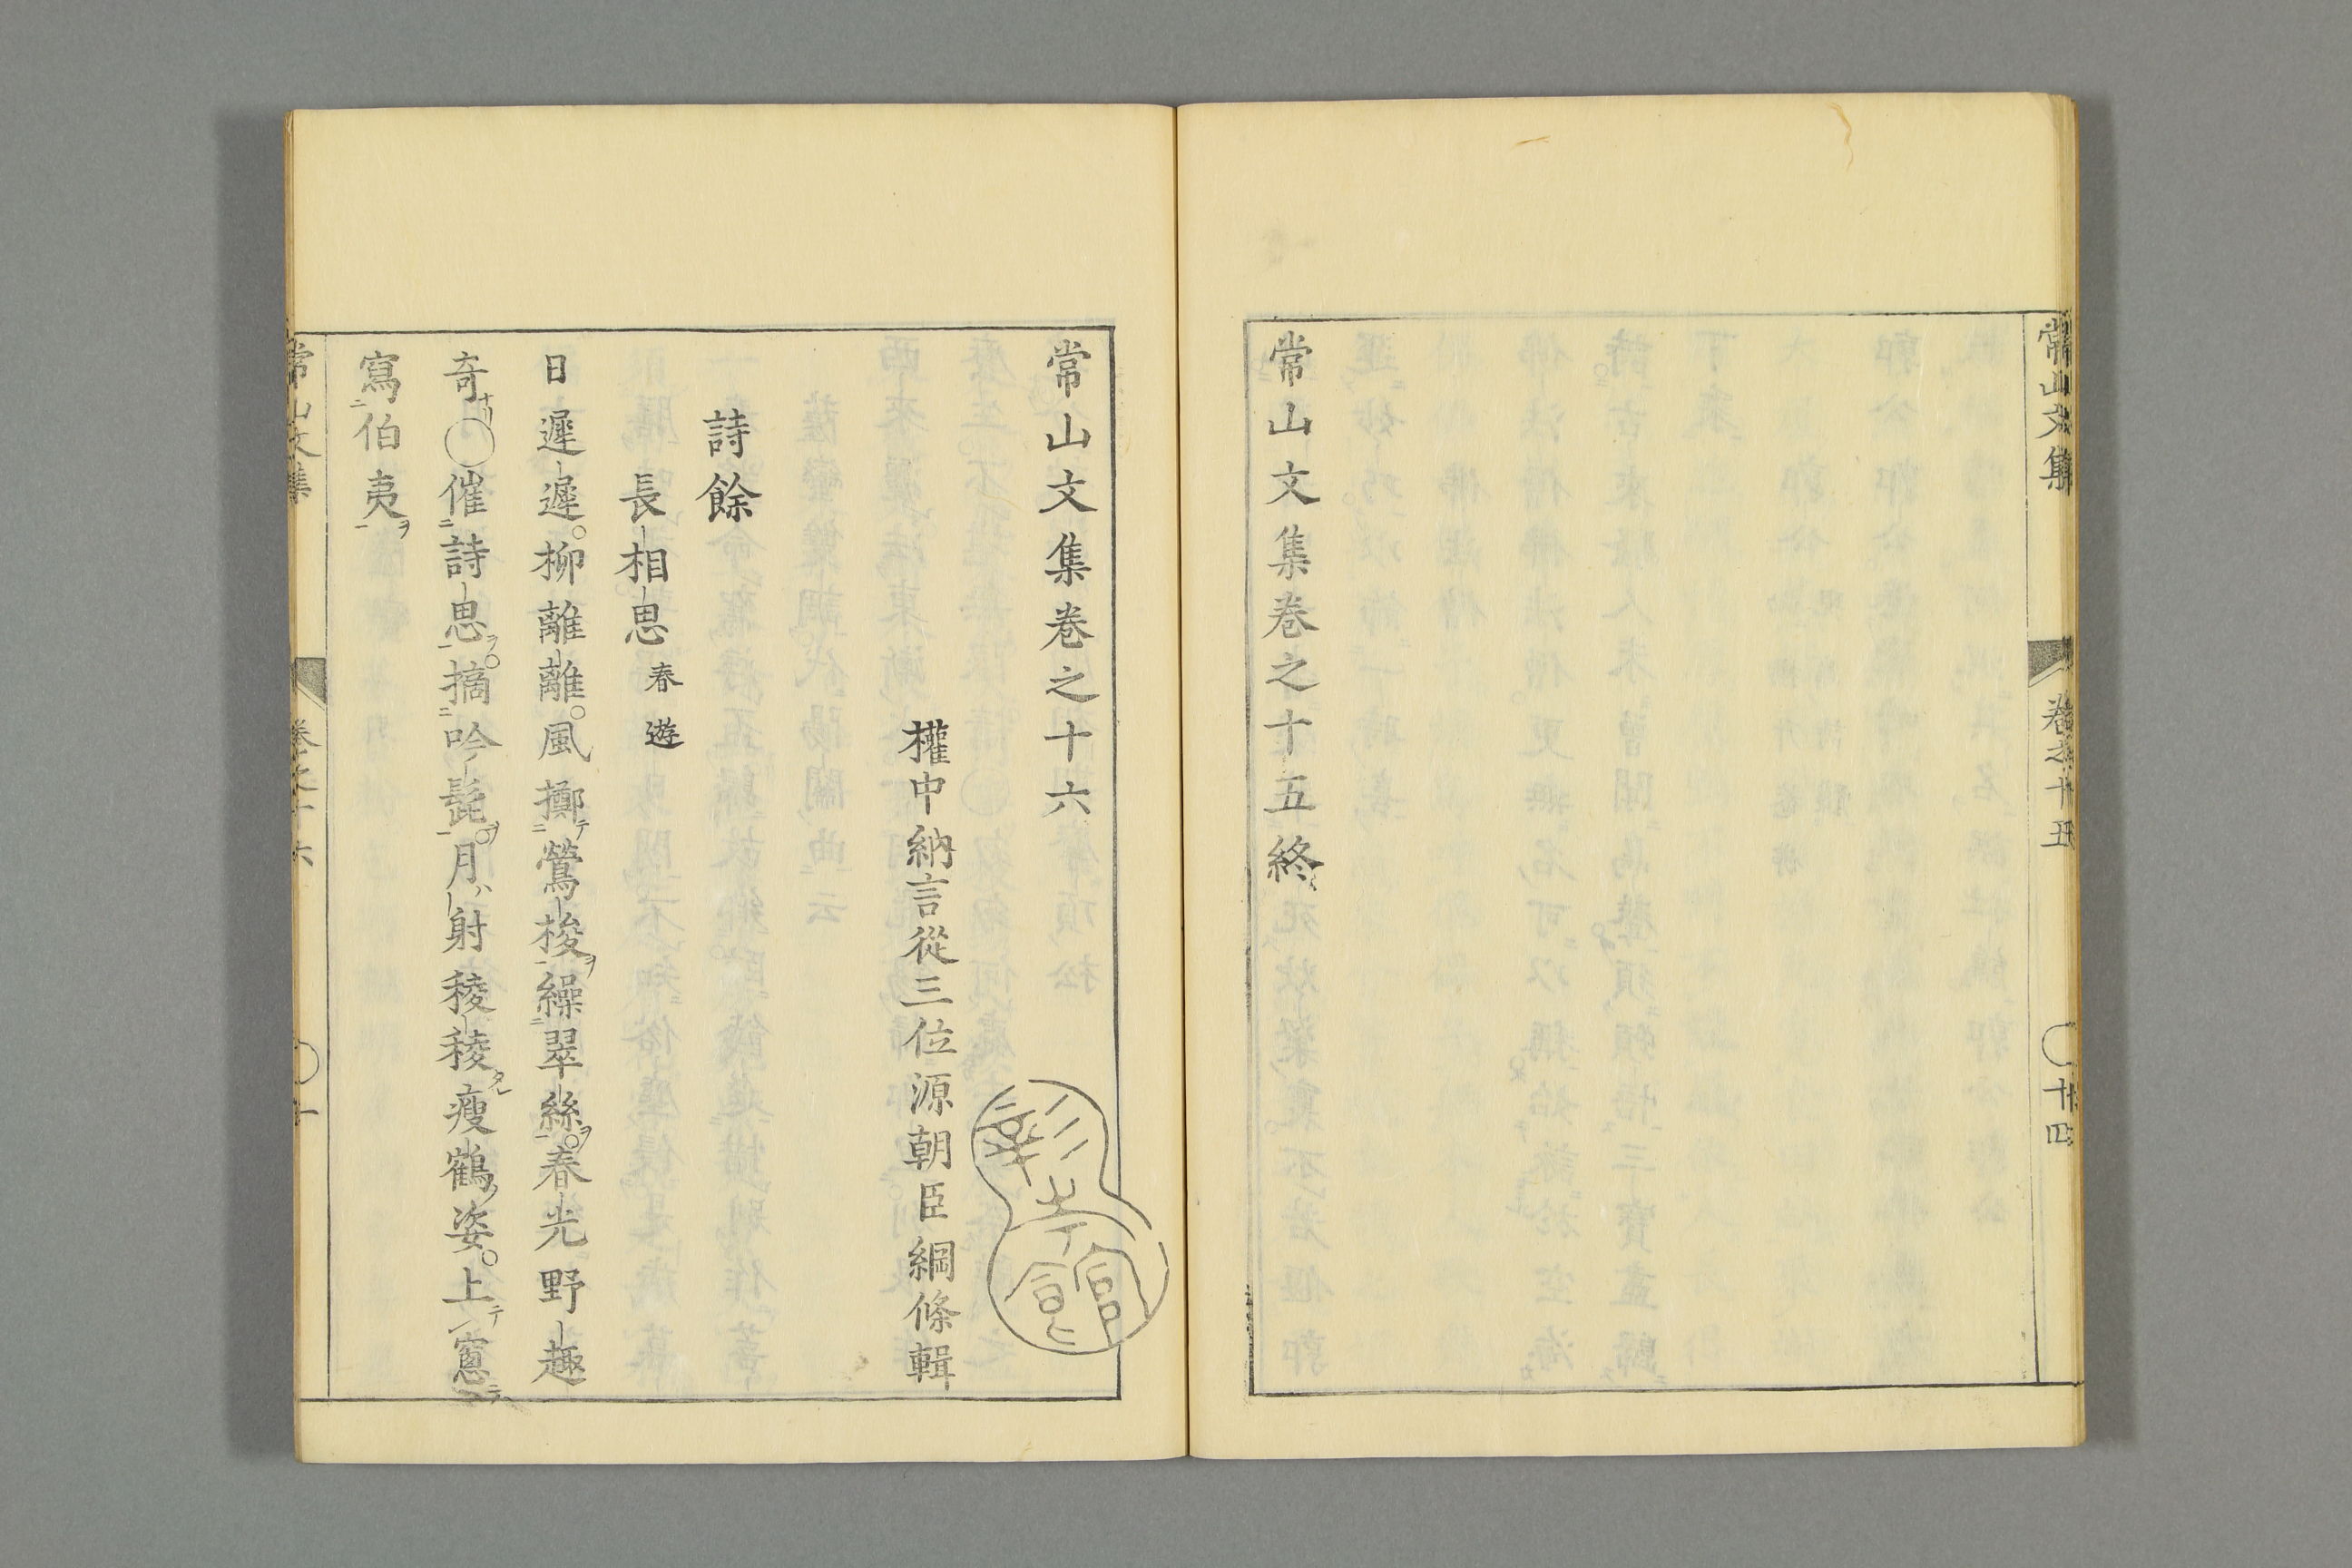 常山文集 卷之十五 〇十四
常山文集卷之十五終
常山文集卷之十六
權中納言從三位源朝臣綱條輯
彰考館
詩餘
長相思 春遊
日遲遲。柳離離。風擲鶯梭繰翠絲。春光野趣
奇〇催詩思。摘吟髭。月射稜稜瘦鶴姿。上窻
寫伯夷
常山文集 卷之十六 〇一